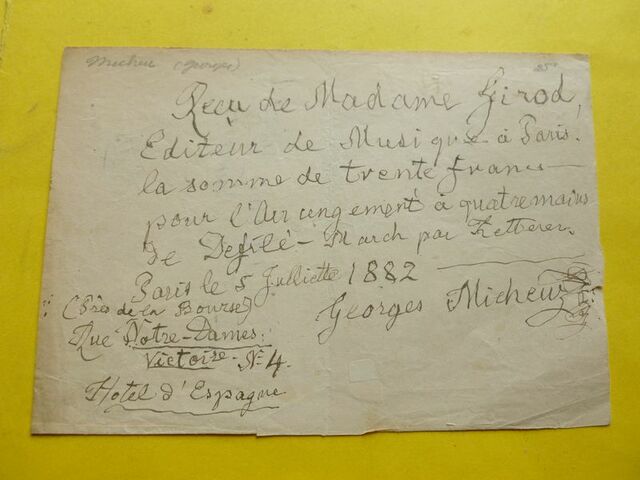 Micheuz (Georges)
Reçu de Madame Girod,
Editeur de Musique à Paris.
la somme de trente francs
pour l'Arrangement à quatre mains
de Defilé-March par Ketterer.
Paris le 5 Julliette 1882
Georges Micheuz
(Près de la Bourse)
Rue Notre-Dames:
Victoire. N=4.
Hotel d'Espagne